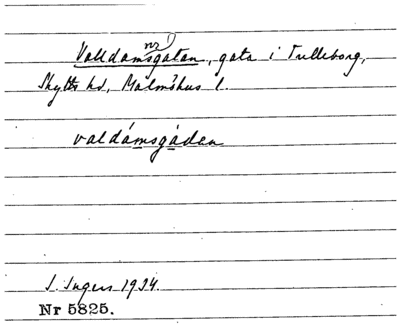 Valldamsgatan, gata i Trelleborg,
Skytts hd, Malmöhus l.
valdámsgáden
I. Ingers 1934.
Nr 5825.